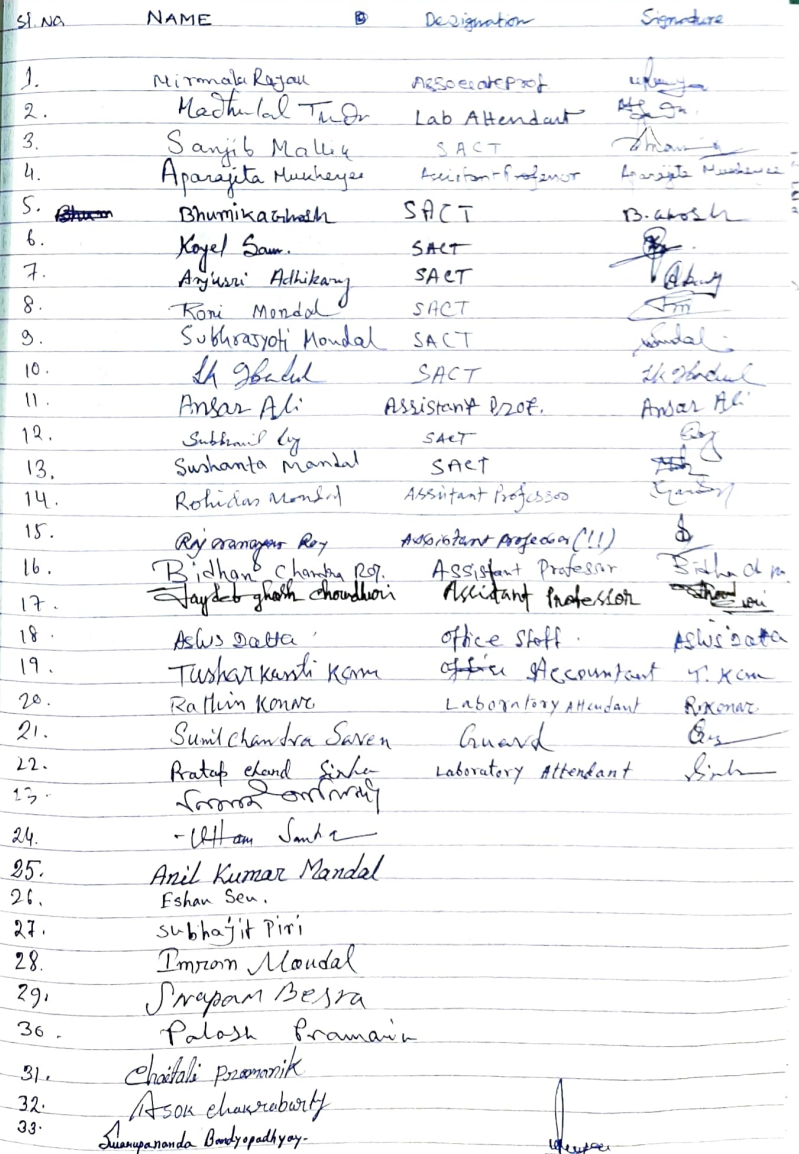 Sl. No NAME Designation Signature
1. Nirmala Rajau Associate Prof
2. Madhulal Tudu Lab Attendant
3. Sanjib Mallik SACT
4. Aparajita Mukherjee Assistant Professor Aparajita Mukherjee
5. Bhumika Ghosh SACT B. Ghosh
6. Koyel Sau. SACT
7. Anjusri Adhikary SACT
8. Roni Mondal SACT
9. Subhrajyoti Mondal SACT Mondal
10. Sk SACT Sk
11. Ansar Ali Assistant Prof. Ansar Ali
12. SACT
13. Sushanta Mandal SACT
14. Rohidas Mondal Assistant Professor
15. Roy Assistant Professor (!!)
16. Bidhan Chandra Roy. Assistant Professor
17. Jaydeb ghosh choudhuri Assistant Professor
18 Asis Datta Office Staff. Asis Datta
19. Tushar kanti Kar Accountant T. Kar
20. Rathin Konar Laboratory Attendant R. Konar
21. Sunil chandra Saren Guard
22. Pratap chand Sinha Laboratory Attendant Sinha
13.
24. Uttam
25. Anil Kumar Mandal
26. Eshan Sen.
27. Subhajit Piri
28. Imran Mondal
29. Swapan Besra
30. Palash Pramanik
31. Chaitali Pramanik
32. Asok Chakraborty
33. Swarupananda Bandyopadhyay.